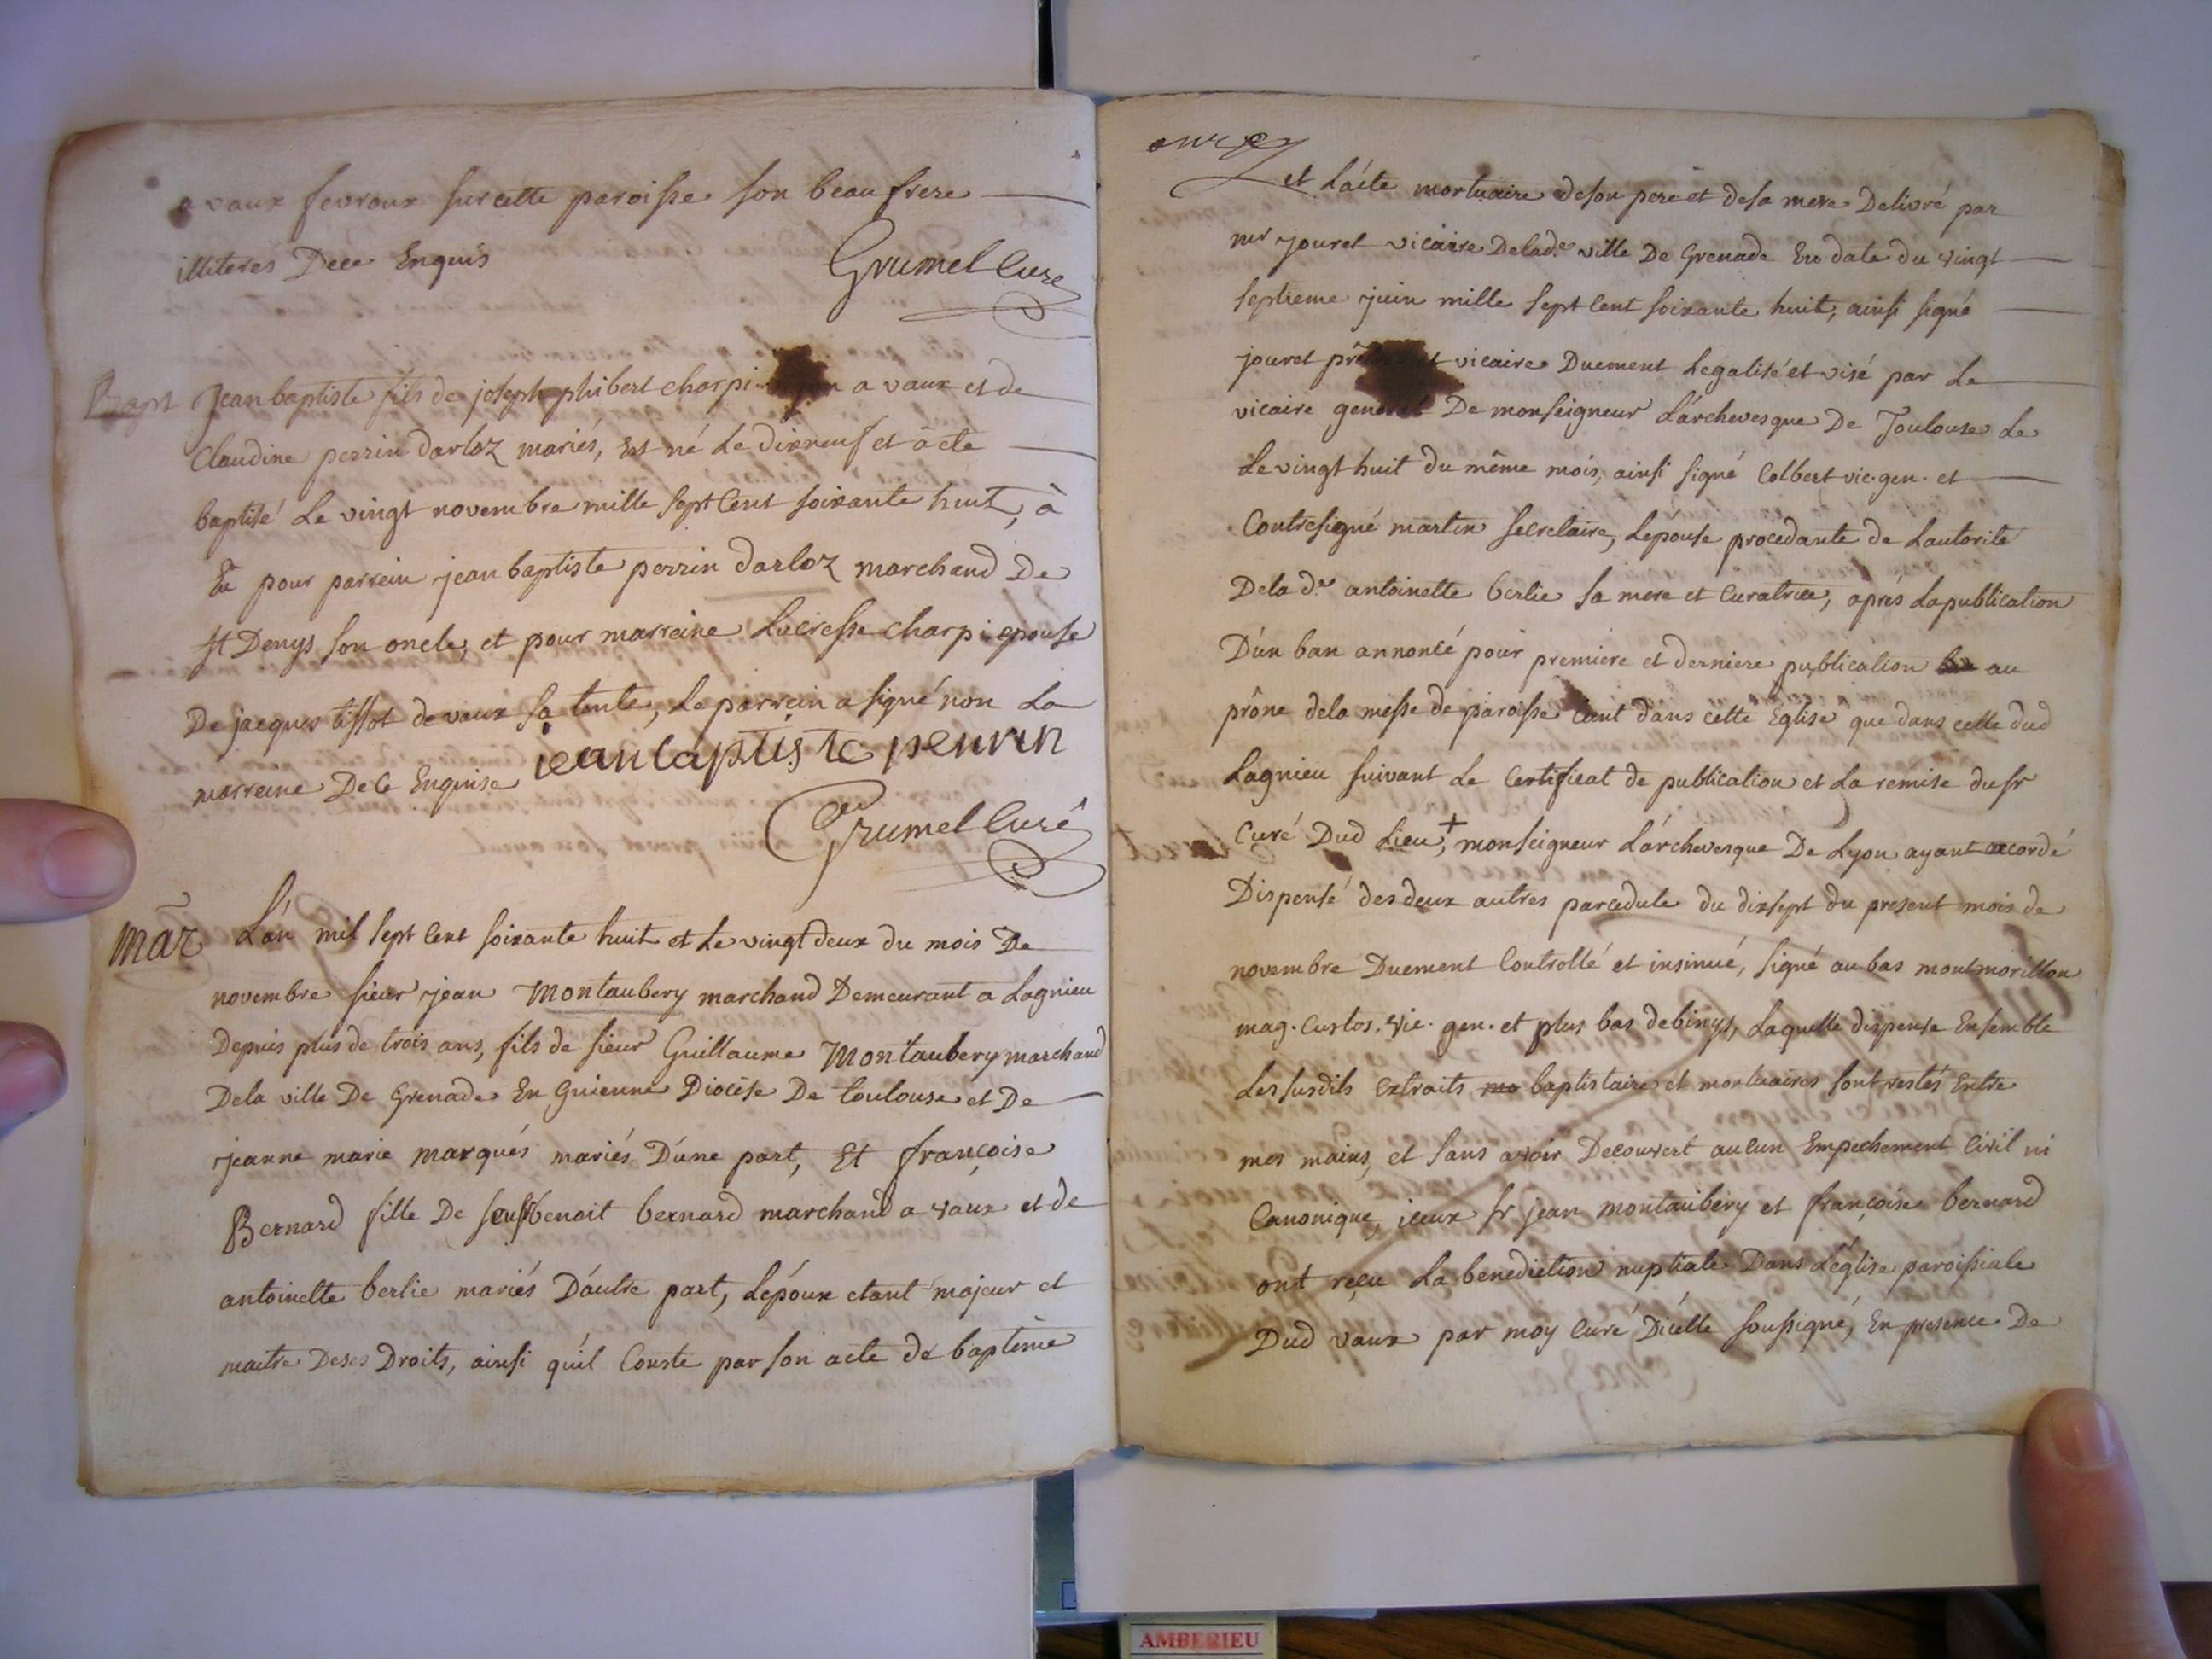 a vaux fevroux sur cette paroisse son beau frere
illiteres Dece Enquis Grumel Curé
Bapt Jean baptiste fils de joseph phibert charpi a vaux et de
Claudine perrin darloz mariés, Est né Le dixneuf et à ete
baptisé Le vingt novembre mille Sept Cent soixante huit, à
Eu pour parrein jean baptiste perrin darloz marchand De
St Denys son oncle, et pour marreine Lucresse charpi epouse
De jacques tissot de vaux sa tente, Le parrein a signé non La
marreine De ce Enquise jean baptiste perrin
Grumel Curé
mar L'án mil sept Cent soixante huit et Le vingt deux du mois De
novembre sieur jean Montaubery marchand Demeurant a Lagnieu
Depuis plus de trois ans, fils de sieur Guillaume Montaubery marchand
Dela ville De Grenade En Guienne Diocèse De toulouse et De
jeanne marie marqués mariés D'úne part, Et françoise
Bernard fille De feu sr benoit bernard marchand a vaux et de
antoinette berlie mariés D'áutre part, L'époux etant majeur et
maitre De ses Droits, ainsi qu'íl Conste par son acte de baptême
et L'ácte mortuaire de son pere et de sa mere Delivré par
mr jouret vicaire De lad.e ville De Grenade En date du vingt
septieme juin mille sept Cent soixante huit, ainsi signé
jouret vicaire Duement Legalisé et visé par Le
vicaire general De monseigneur L'árchevesque De Toulouse Le
Le vingt huit du même mois, ainsi signé Colbert vic. gen. et
Contresigné martin secretaire, L'épouse procedante de L'autorité
De la d.e antoinette berlie sa mere et Curatrice, aprés La publication
D'ún ban annoncé pour premiere et derniere publication au
prône dela messe de paroisse tant dans cette Eglise que dans celle dud
Lagnieu suivant Le Certificat de publication et La remise du sr
Curé Dud Lieu, + monseigneur L'árchevesque De Lyon ayant accordé
Dispense des deux autres par cedule du dixsept du present mois de
novembre Duement Controllé et insinué, signé au bas montmorillon
mag. Custos. vic. gen. et plus bas debinys, Laquelle dispense Ensemble
Les susdits Extraits mo baptistaire et mortuaires sont restés Entre
mes mains, et sans avoir Decouvert aucun Empechement Civil ni
Canonique, iceux sr jean montaubery et françoise bernard
ont reçu La benediction nuptiale Dans L'église paroissiale
Dud vaux par moy Curé D'icélle soussigné, En presence De
AMBERIEU